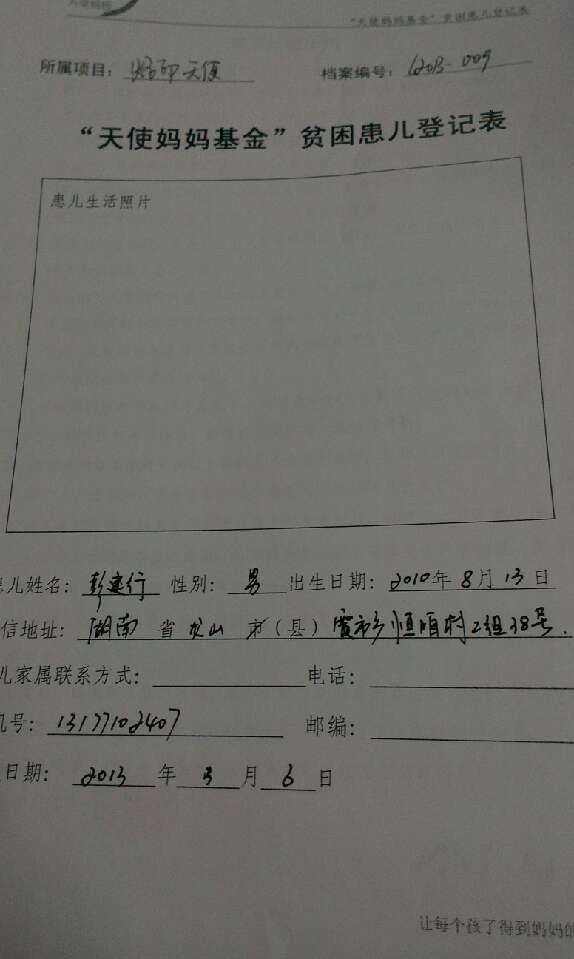 "天使妈妈基金"贫困患儿登记表
所属项目： 天使 档案编号：
"天使妈妈基金"贫困患儿登记表
患儿生活照片
儿姓名：彭建行 性别：男 出生日期：2010年8月13日
信地址：湖南省 山市（县） 村2组38号.
儿家属联系方式： 电话：
号：13177102407 邮编：
日期：2013年3月6日
让每个孩子得到妈妈的